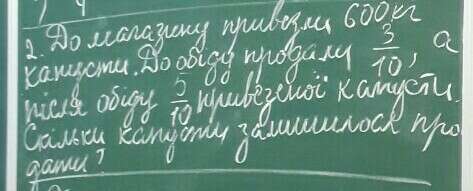 2. До магазину привезли 600 кг
капусти. До обіду продали 3/10, а
після обіду 5/10 привезеної капусти.
Скільки капусти залишилося про
дати?